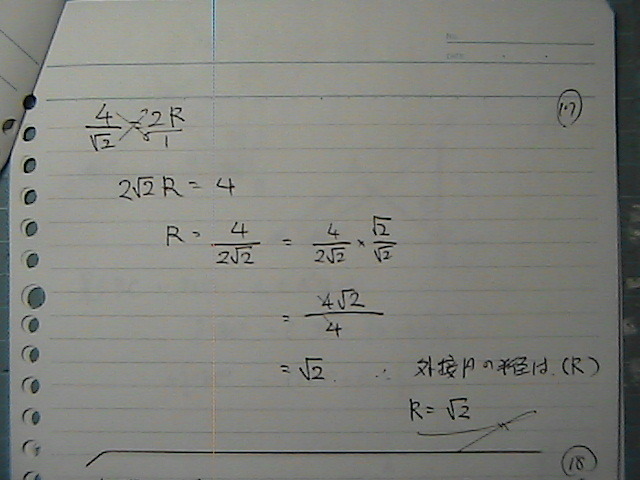 17
4/√2 = 2R/1
2√2 R = 4
R = 4/2√2 = 4/2√2 × √2/√2
= 4√2/4
= √2 ∴ 外接円の半径は (R)
R = √2
18